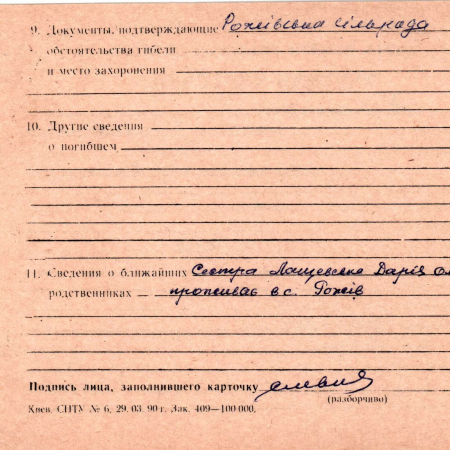 9. Документы, подтверждающие Рожівська сільрада
обстоятельства гибели
и место захоронения
10. Другие сведения
о погибшем
11. Сведения о ближайших Сестра Лащевська Дарія
родственниках — проживає в с. Рожів
Подпись лица, заполнившего карточку
(разборчиво)
Киев. СПТУ № 6, 29. 03. 90 г. Зак. 409—100 000.